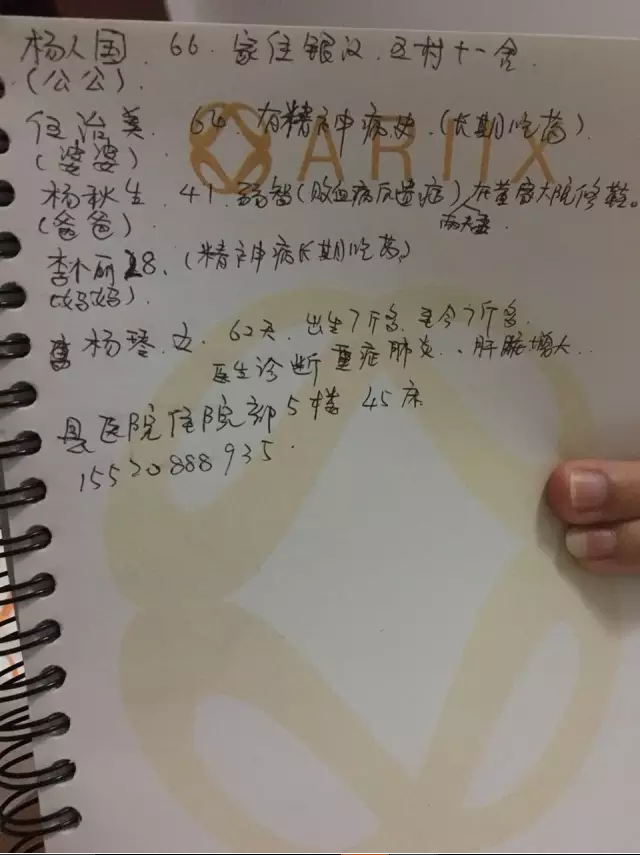 杨人国. 66. 家住银汉. 五村十一舍.
(公公).
任治美. 64. 有精神病史. (长期吃药).
(婆婆)
ARIIX
杨秋生. 41. 弱智(败血病后遗症)在黄家大院修鞋。
(爸爸)
两夫妻.
李小丽 28. (精神病长期吃药)
(妈妈).
杨琴. 女. 62天. 出生7斤多. 至今7斤多.
医生诊断 重症肺炎、肝脏增大..
县医院住院部5楼 45床
15520888935.